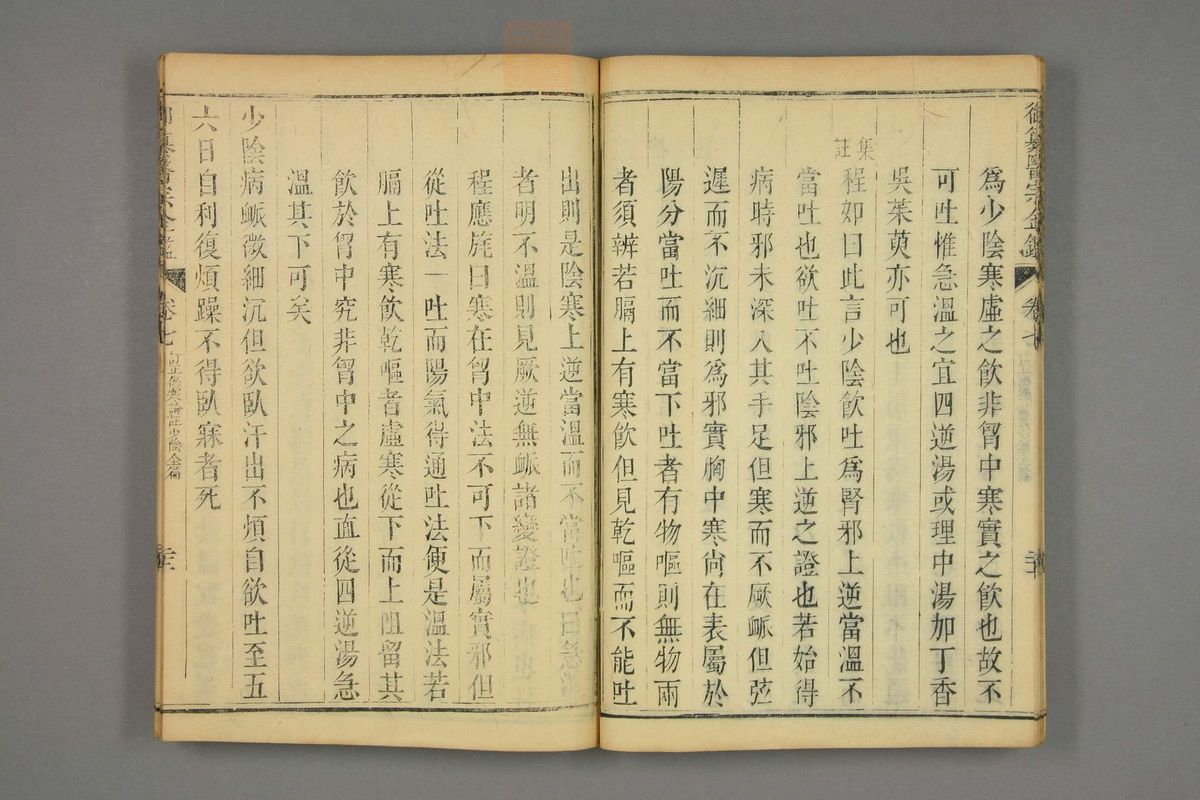 御纂醫宗金鑑
卷七
為少陰寒虛之飲非胷中寒實之飲也故不
可吐惟急溫之宜四逆湯或理中湯加丁香
吳茱萸亦可也
集註
程知曰此言少陰飲吐為腎邪上逆當溫不
當吐也欲吐不吐陰邪上逆之證也若始得
病時邪未深入其手足但寒而不厥脈但弦
遲而不沉細則為邪實胸中寒尚在表屬於
陽分當吐而不當下吐者有物嘔則無物兩
者須辨若膈上有寒飲但見乾嘔而不能吐
出則是陰寒上逆當溫而不當吐也曰急溫
者明不溫則見厥逆無脈諸變證也
程應旄曰寒在胷中法不可下而屬實邪但
從吐法一吐而陽氣得通吐法便是溫法若
膈上有寒飲乾嘔者虛寒從下而上阻留其
飲於胷中究非胷中之病也直從四逆湯急
溫其下可矣
少陰病脈微細沉但欲臥汗出不煩自欲吐至五
六日自利復煩躁不得臥寐者死
御纂醫宗金鑑
卷七
訂正傷寒論註少陰全篇